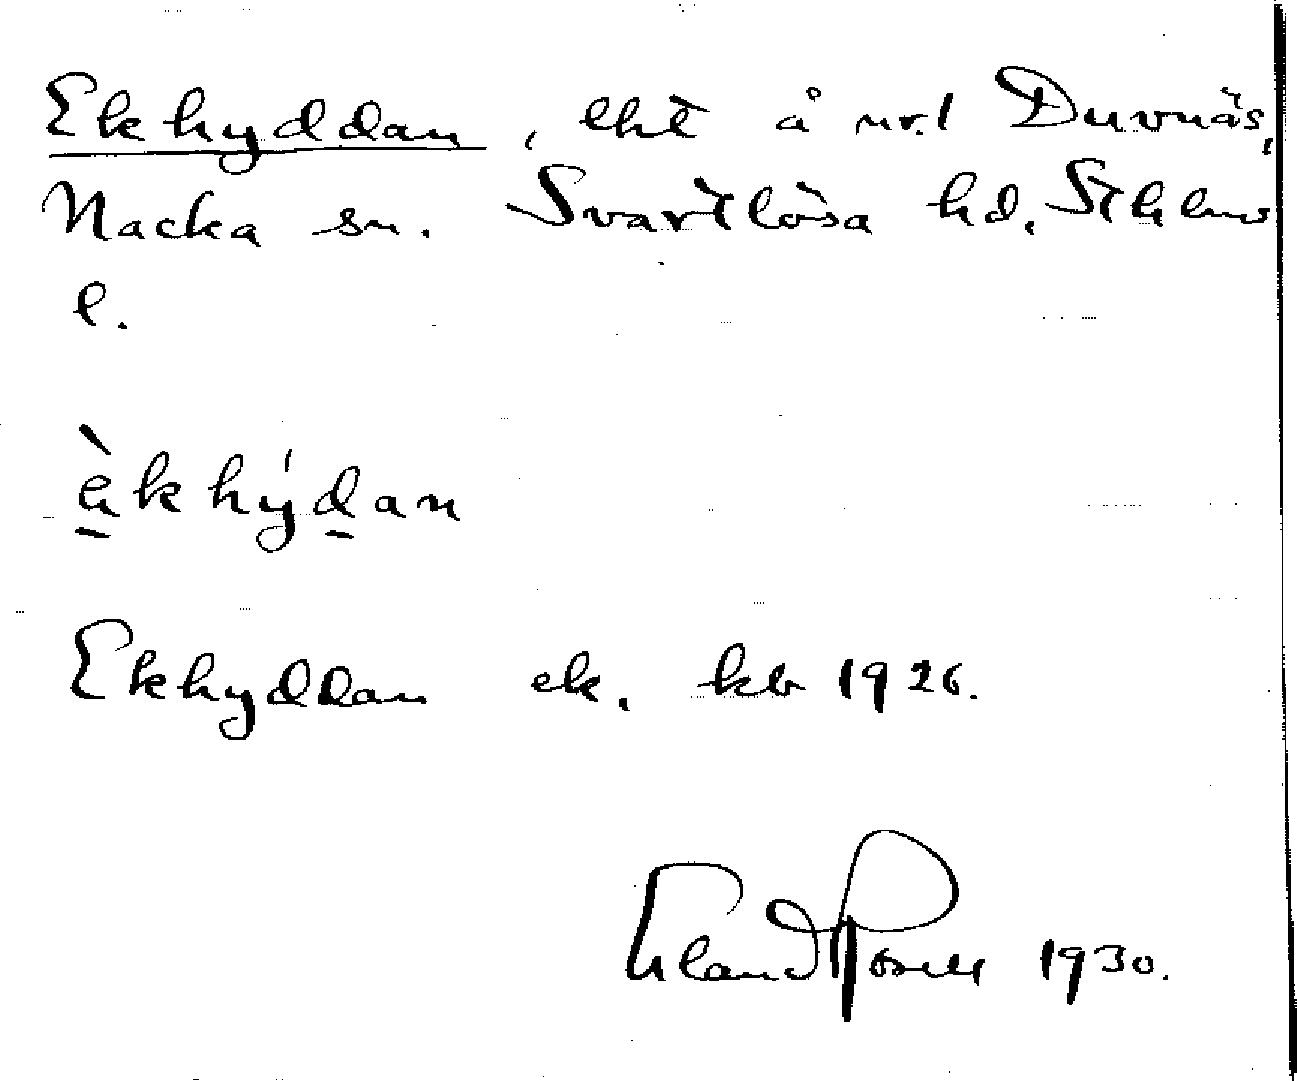 Ekhyddan, lht å nr. 1 Duvnäs,
Nacka sn. Svartlösa hd, Sthlms
l.
èkhýdan
Ekhyddan ek. kb 1926.
Erland Rosell 1930.